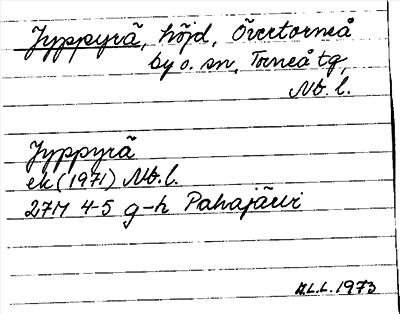 Jyppyrä, höjd, Övertorneå
by o. sn, Torneå tg,
Nb. l.
Jyppyrä
ek (1971) Nb. l.
27M 4-5 g-h Pahajärvi
H.L.L. 1973